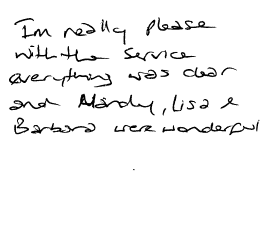 I'm really please
with the service
everything was clear
and Mandy, Lisa &
Barbara were wonderful